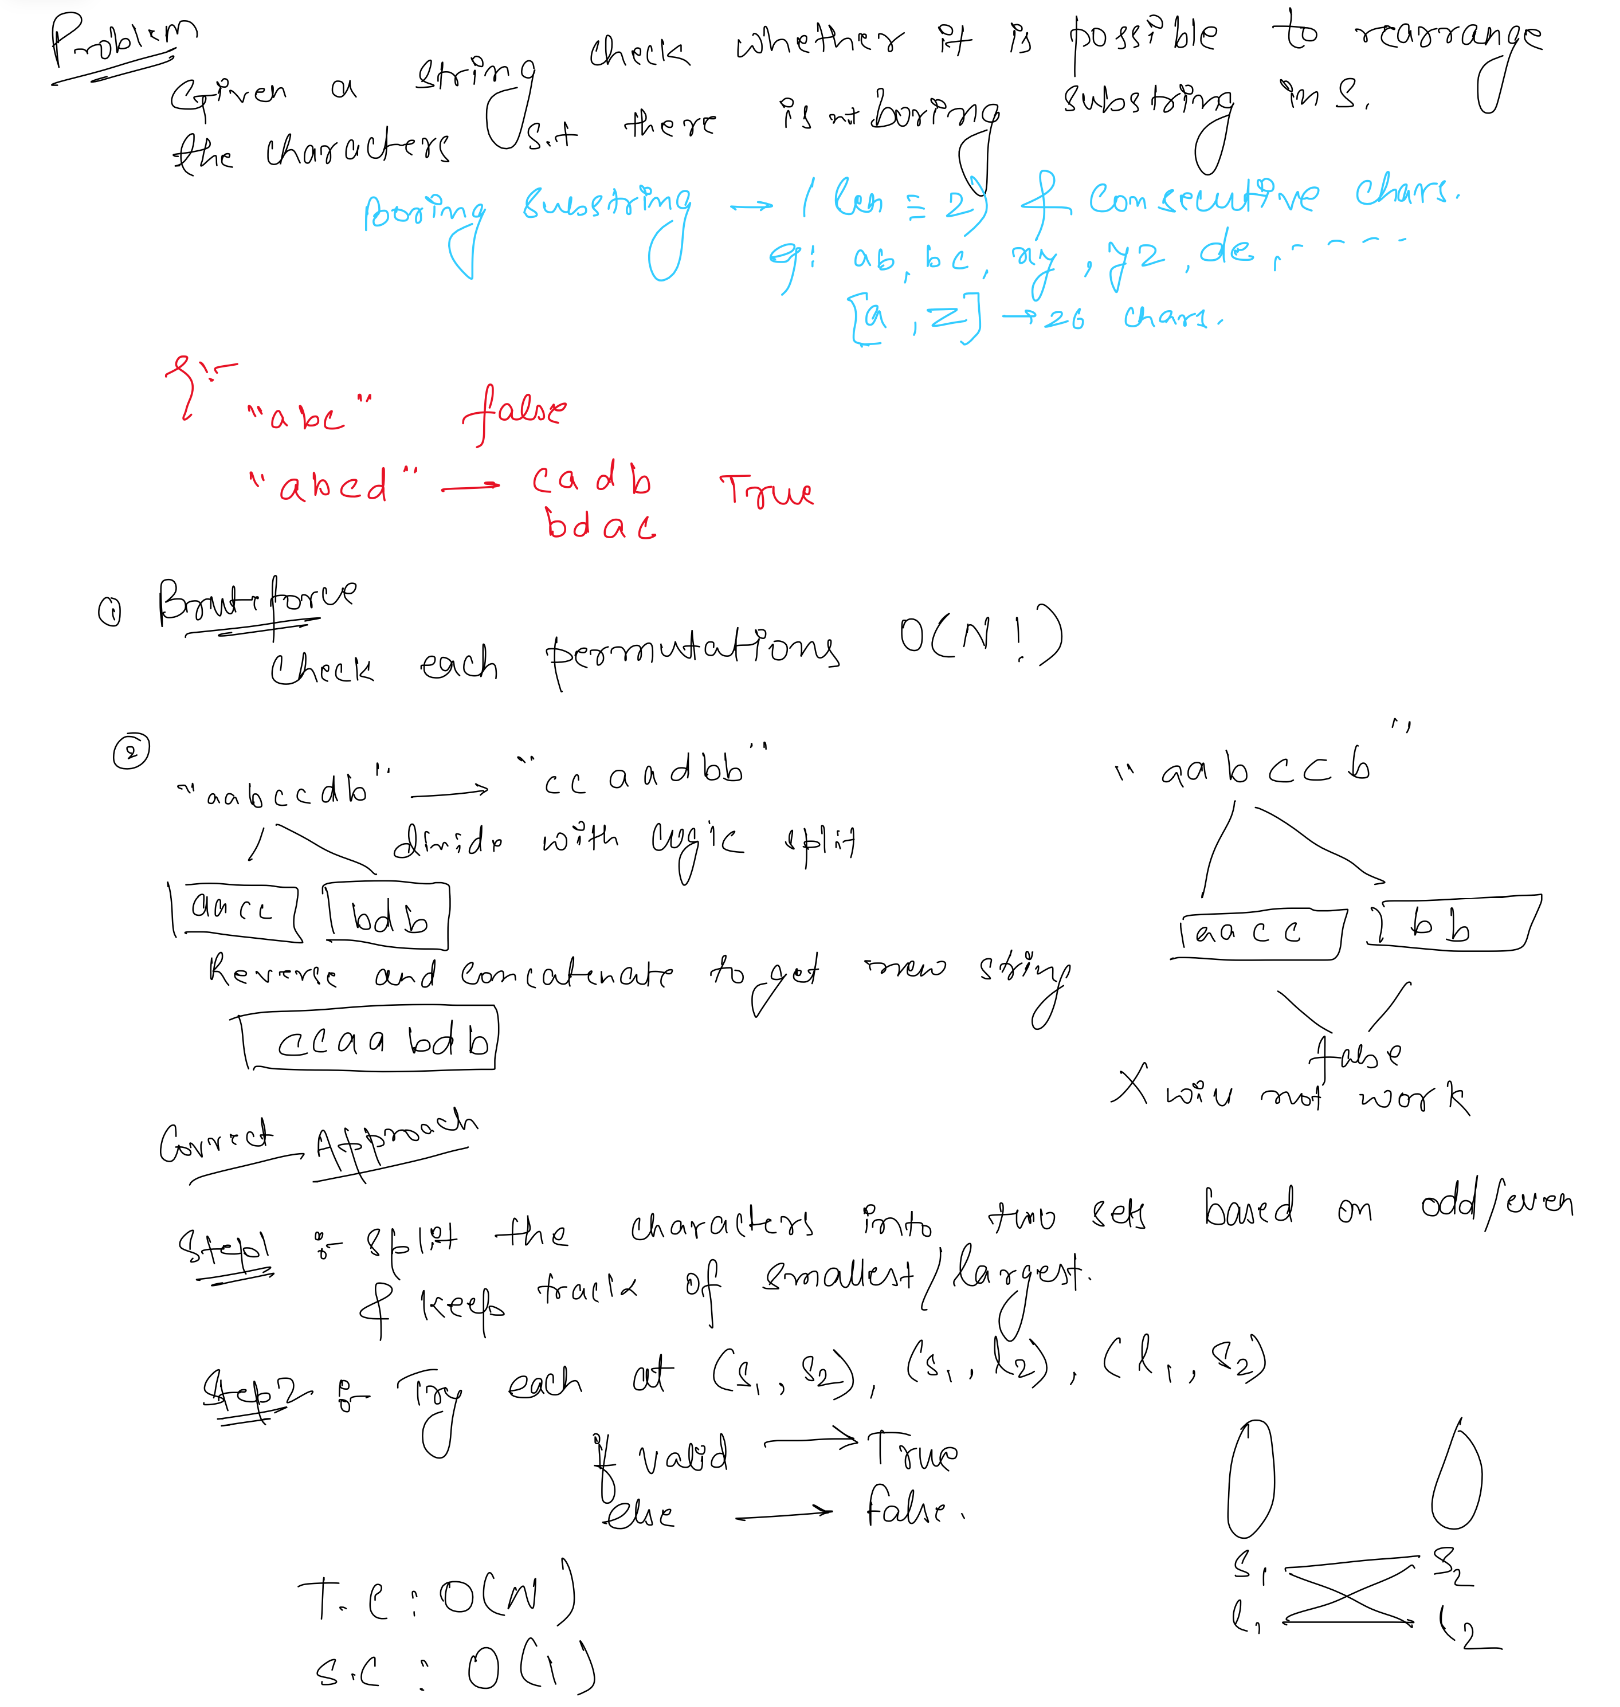 Problem
Given a string check whether it is possible to rearrange
the characters s.t there is not boring substring in S.
Boring substring → (len = 2) & Consecutive chars.
eg: ab, bc, xy, yz, de, - - - -
[a, z] → 26 chars.
"abc" false
"abcd" → cadb True
bdac
① Bruteforce
Check each permutations O(N!)
②
"aabccdb" → "cc aadbb"
divide with logic split
aacc bdb
Reverse and concatenate to get new string
ccaa bdb
"aabccb"
aacc bb
false
X will not work
Correct Approach
Step1 :- split the characters into two sets based on odd/even
& keep track of smallest/largest.
Step2 :- Try each at (s1, s2), (s1, l2), (l1, s2)
if valid → True
else → false.
s1 s2
l1 l2
T.C : O(N)
S.C : O(1)